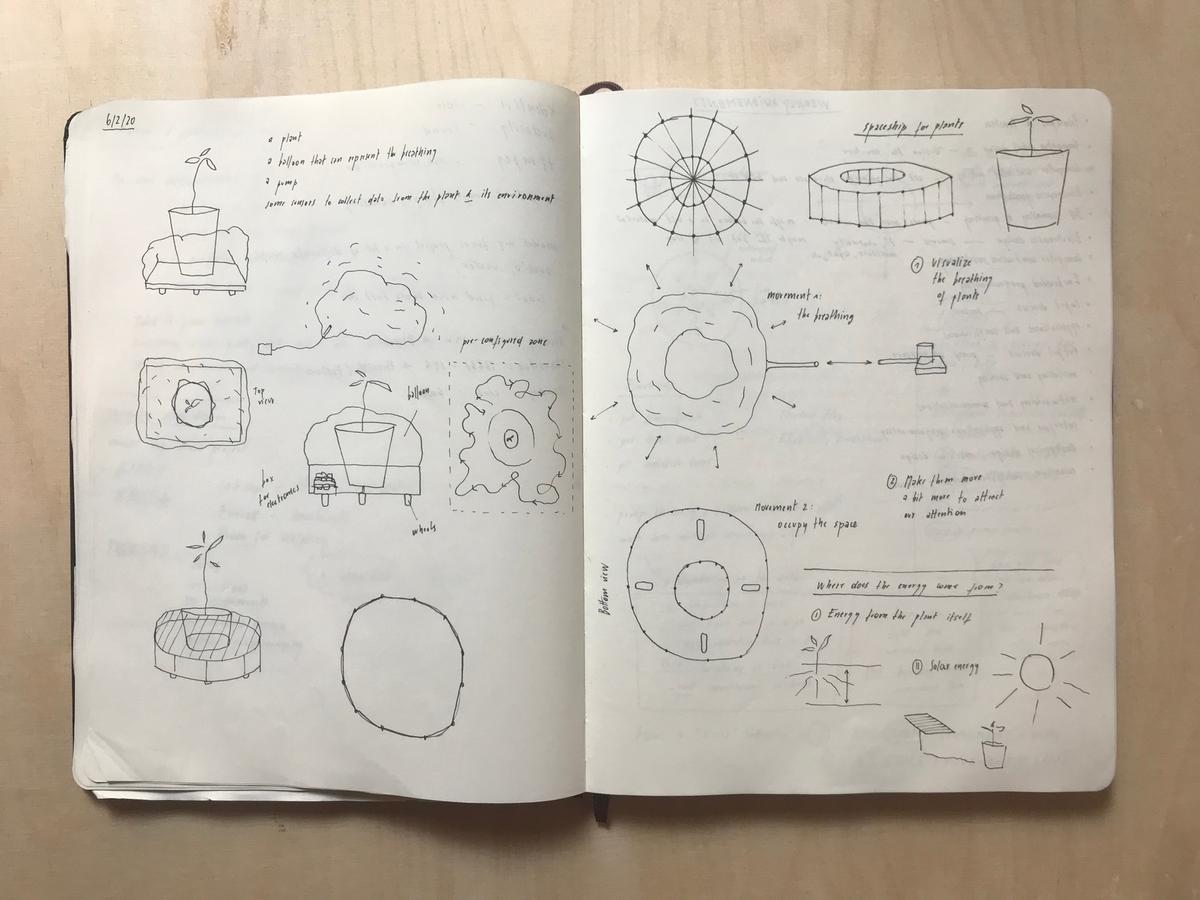 6/2/20
a plant
a balloon that can represent the breathing
a pump
some sensors to collect data from the plant & its environment
pre-configured zone
Top
view
balloon
box
for
electronics
wheels
spaceship for plants
① Visualize
the breathing
of plants
movement 1:
the breathing
② Make them move
a bit more to attract
our attention
Movement 2:
occupy the space
Bottom view
Where does the energy come from?
Ⓘ Energy from the plant itself
Ⓘ Solar energy